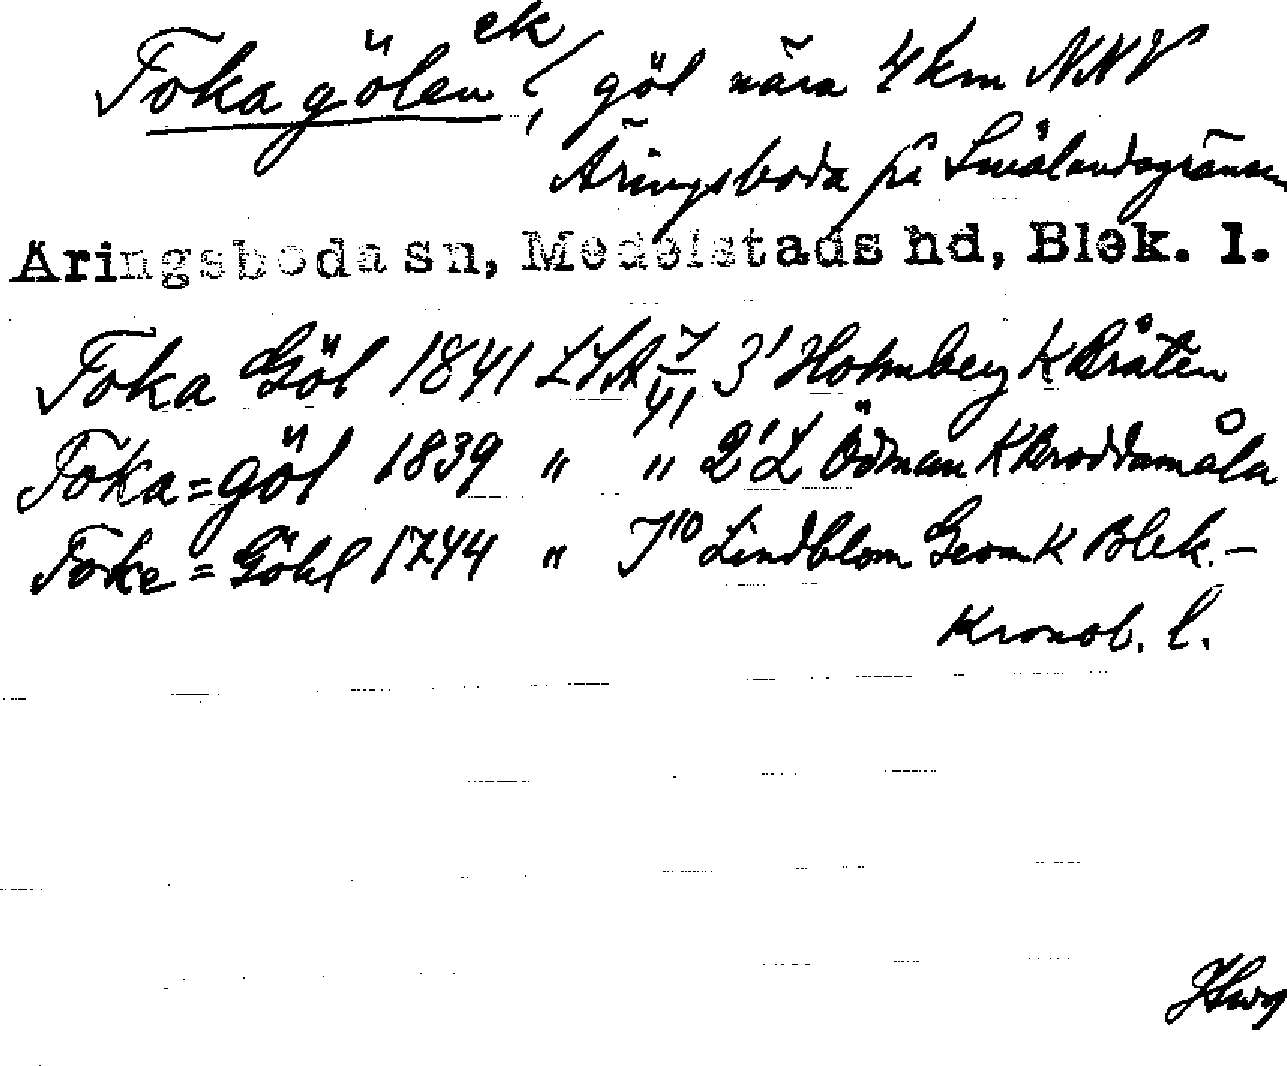 Foka gölen ek, göl nära 4 km NNV
Äringsboda på Smålandsgränsen
Äringsboda sn, Medelstads hd, Blek. l.
Foka Göl 1841 LSA 7/41 3' Holmberg K Bråten
Foka=göl 1839 " " 2' L Ödman K Broddamåla
Foke=Göhl 1744 " J10 Lindblom Geom K Blek.-
Kronob. l.